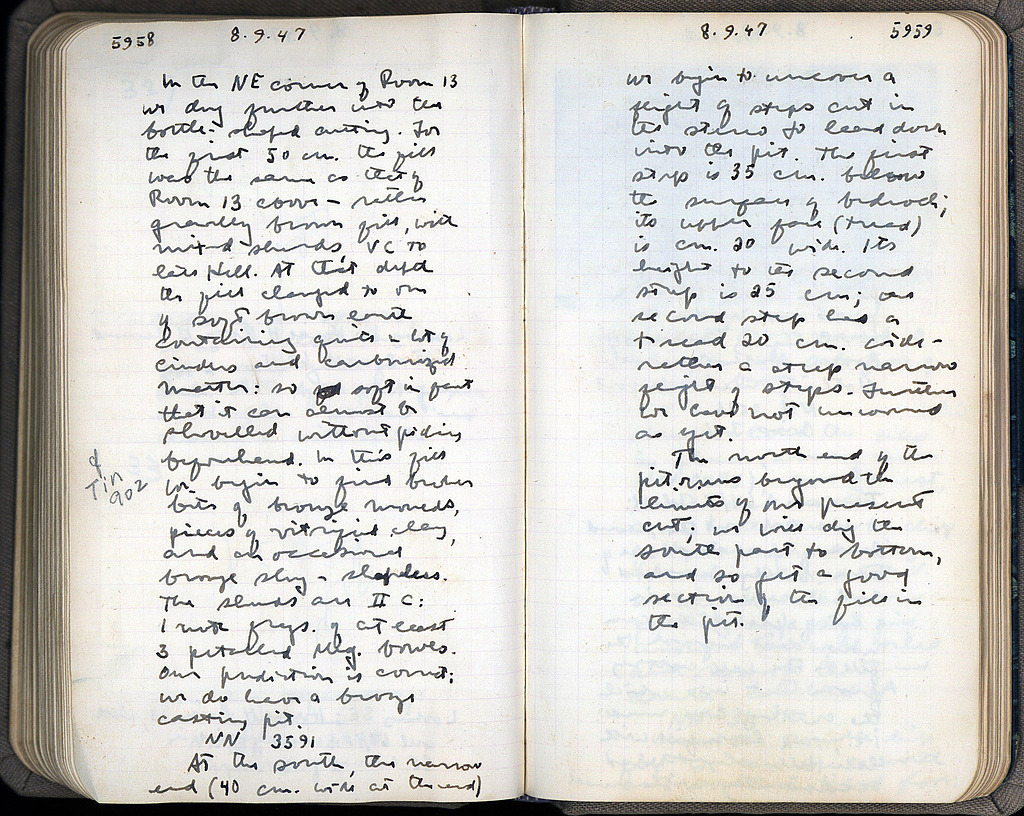 5958
8.9.47
In the NE corner of Room 13
we dig further into the
bottle-shaped cutting. For
the first 50 cm. the fill
was the same as that of
Room 13 above – rather
gravelly brown fill, with
mixed sherds, VC to
late Hell. At that depth
the fill changed to one
of soft brown earth
containing quite a lot of
cinders and carbonized
matter: so soft in fact
that it can almost be
shovelled without picking
beforehand. In this fill
we begin to find broken
bits of bronze moulds,
pieces of vitrified clay,
and an occasional
bronze slug – shapeless.
The sherds are II C:
I note frags. of at least
3 petalled Meg. bowls.
Our prediction is correct;
we do have a bronze
casting pit.
NN 3591
At the south, the narrow
end (40 cm. wide at the end)
& Tin
902
8.9.47
5959
we begin to uncover a
flight of steps cut in
the stereo to lead down
into the pit. The first
step is 35 cm. below
the surface of bedrock;
its upper face (tread)
is cm. 20 wide. Its
height to the second
step is 25 cm; the
second step has a
tread 20 cm. wide –
rather a steep narrow
flight of steps. Further
we have not uncovered
as yet.
The north end of the
pit runs beyond the
limits of our present
cut; we will dig the
south part to bottom,
and so get a good
section of the fill in
the pit.